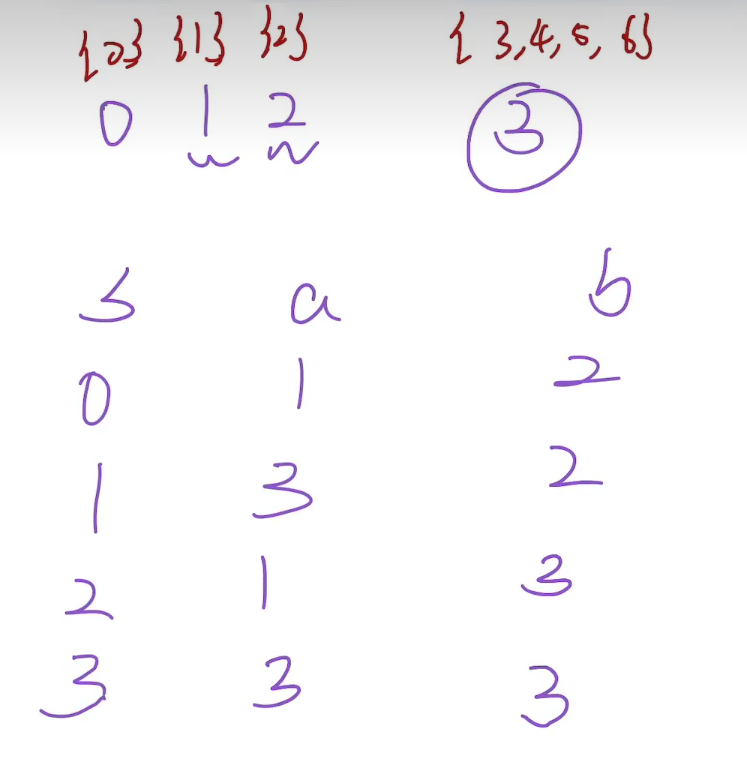 {0} {1} {2} {3,4,5,6}
0 1 2 3
s a b
0 1 2
1 3 2
2 1 3
3 3 3